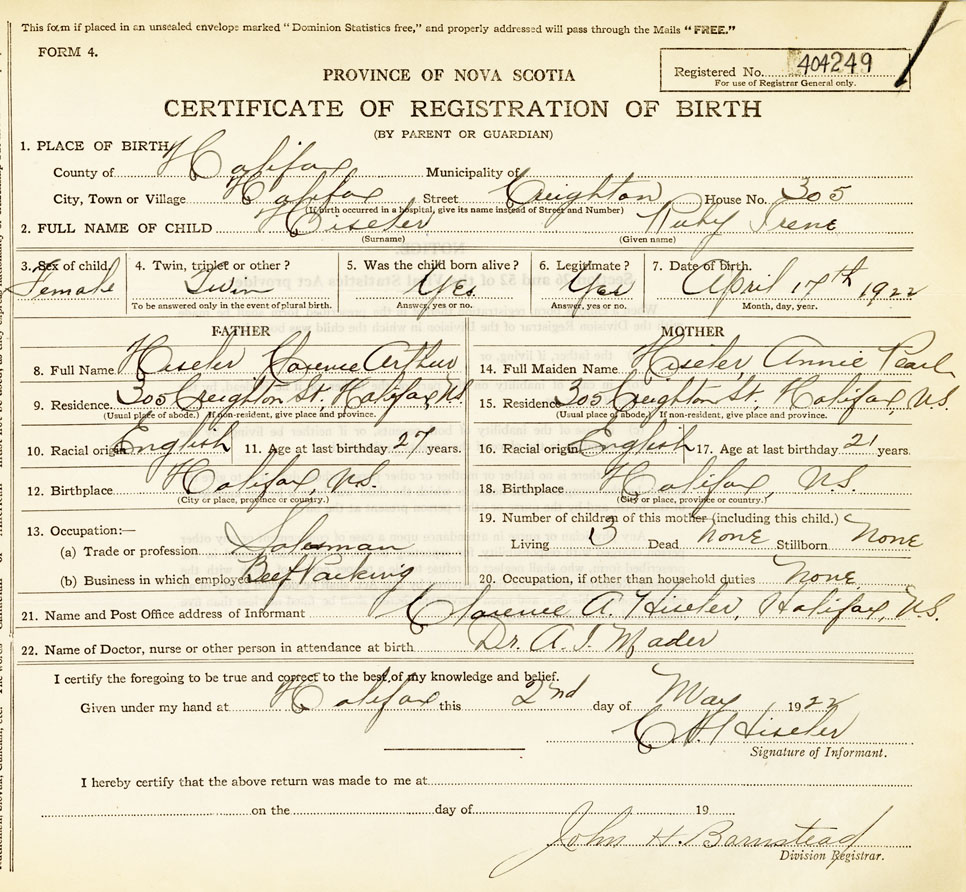 This form if placed in an unsealed envelope marked "Dominion Statistics free," and properly addressed will pass through the Mails "FREE."
FORM 4.
Registered No. 404249
For use of Registrar General only.
PROVINCE OF NOVA SCOTIA
CERTIFICATE OF REGISTRATION OF BIRTH
(BY PARENT OR GUARDIAN)
1. PLACE OF BIRTH
County of Halifax Municipality of
City, Town or Village Halifax Street Creighton House No. 305
(If birth occurred in a hospital, give its name instead of Street and Number)
2. FULL NAME OF CHILD Hiseler Ruby Irene
(Surname) (Given name)
3. Sex of child 4. Twin, triplet or other? 5. Was the child born alive? 6. Legitimate? 7. Date of birth.
Female Twin Yes Yes April 17th 1922
To be answered only in the event of plural birth. Answer, yes or no. Answer, yes or no. Month, day, year.
FATHER MOTHER
8. Full Name Hiseler Clarence Arthur 14. Full Maiden Name Hiseler, Annie Pearl
9. Residence. 305 Creighton St. Halifax, N.S. 15. Residence 305 Creighton St., Halifax, N.S.
(Usual place of abode.) If non-resident, give place and province. (Usual place of abode.) If non-resident, give place and province.
10. Racial origin English 11. Age at last birthday 27 years. 16. Racial origin English 17. Age at last birthday 21 years.
12. Birthplace Halifax, N.S. 18. Birthplace Halifax, N.S.
(City or place, province or country.) (City or place, province or country.)
13. Occupation:— 19. Number of children of this mother (including this child.)
(a) Trade or profession Salesman Living 3 Dead None Stillborn None
(b) Business in which employed Beef Packing 20. Occupation, if other than household duties None
21. Name and Post Office address of Informant Clarence A. Hiseler, Halifax, N.S.
22. Name of Doctor, nurse or other person in attendance at birth Dr. A. I. Mader
I certify the foregoing to be true and correct to the best of my knowledge and belief.
Given under my hand at Halifax this 2nd day of May 1922
C A Hiseler
Signature of Informant.
I hereby certify that the above return was made to me at
on the day of 19
John H. Barnstead
Division Registrar.